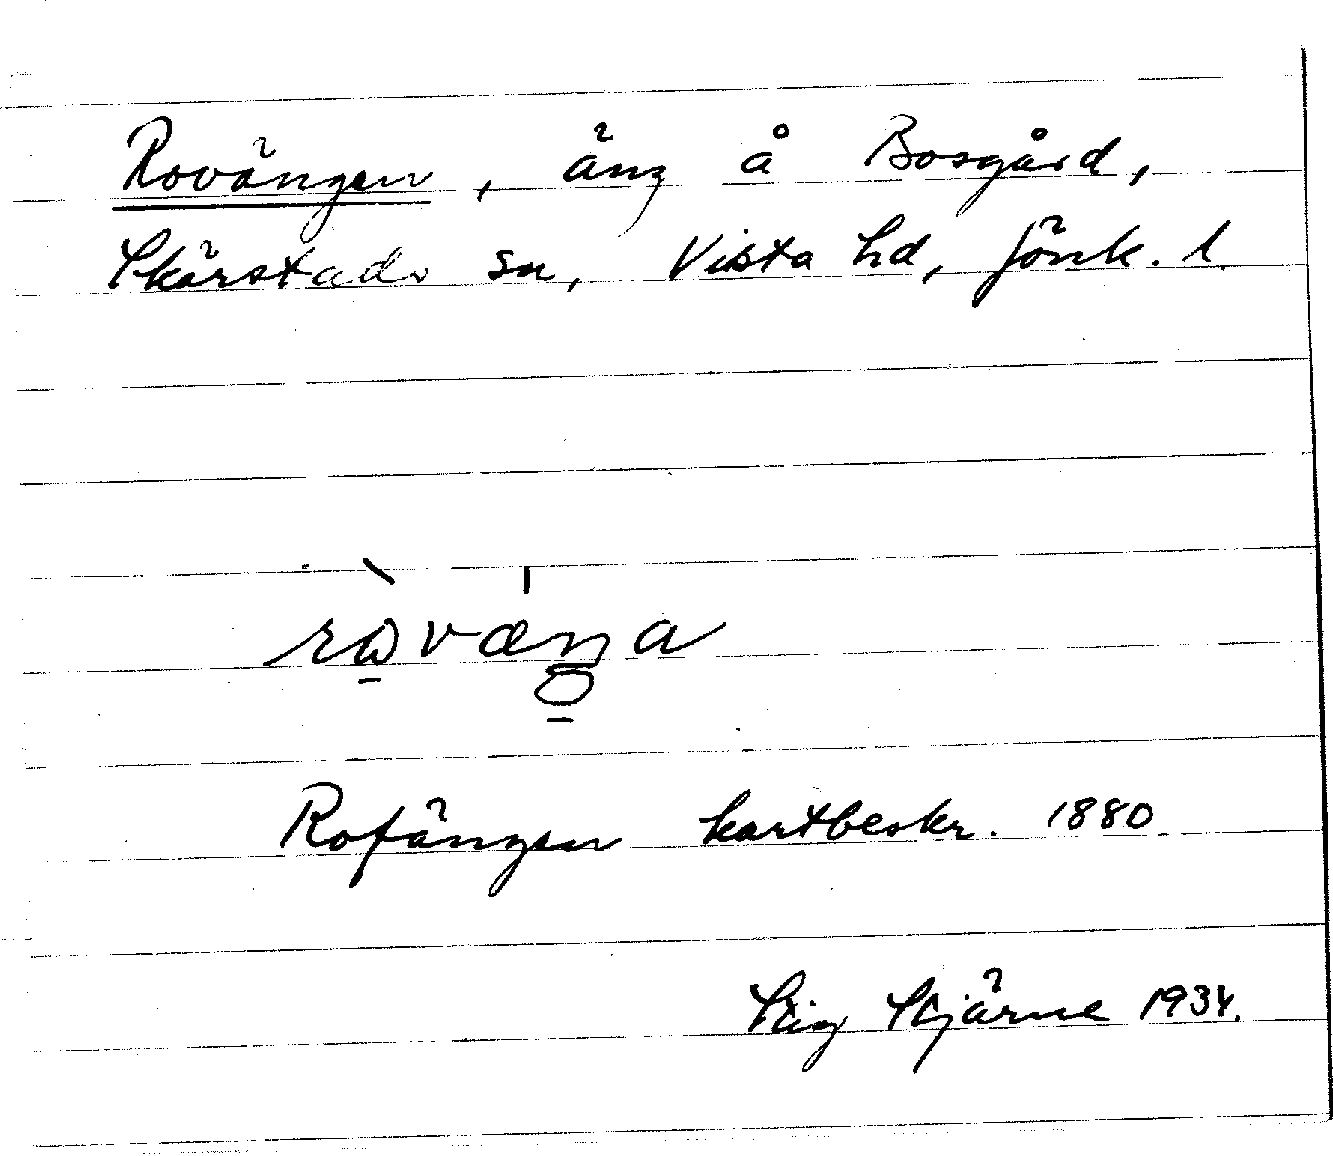 Rovängen, äng å Bosgård,
Skärstads sn, Vista hd, Jönk. l.
ròvæŋa
Rofängen kartbeskr. 1880
Stig Stjärne 1934.